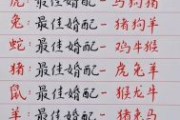 虎：最佳婚配-马狗猪
兔：最佳婚配-猪狗羊
蛇：最佳婚配-鸡牛猴
猪：最佳婚配-虎兔羊
鼠：最佳婚配-猴龙牛
羊：最佳婚配-猪兔马